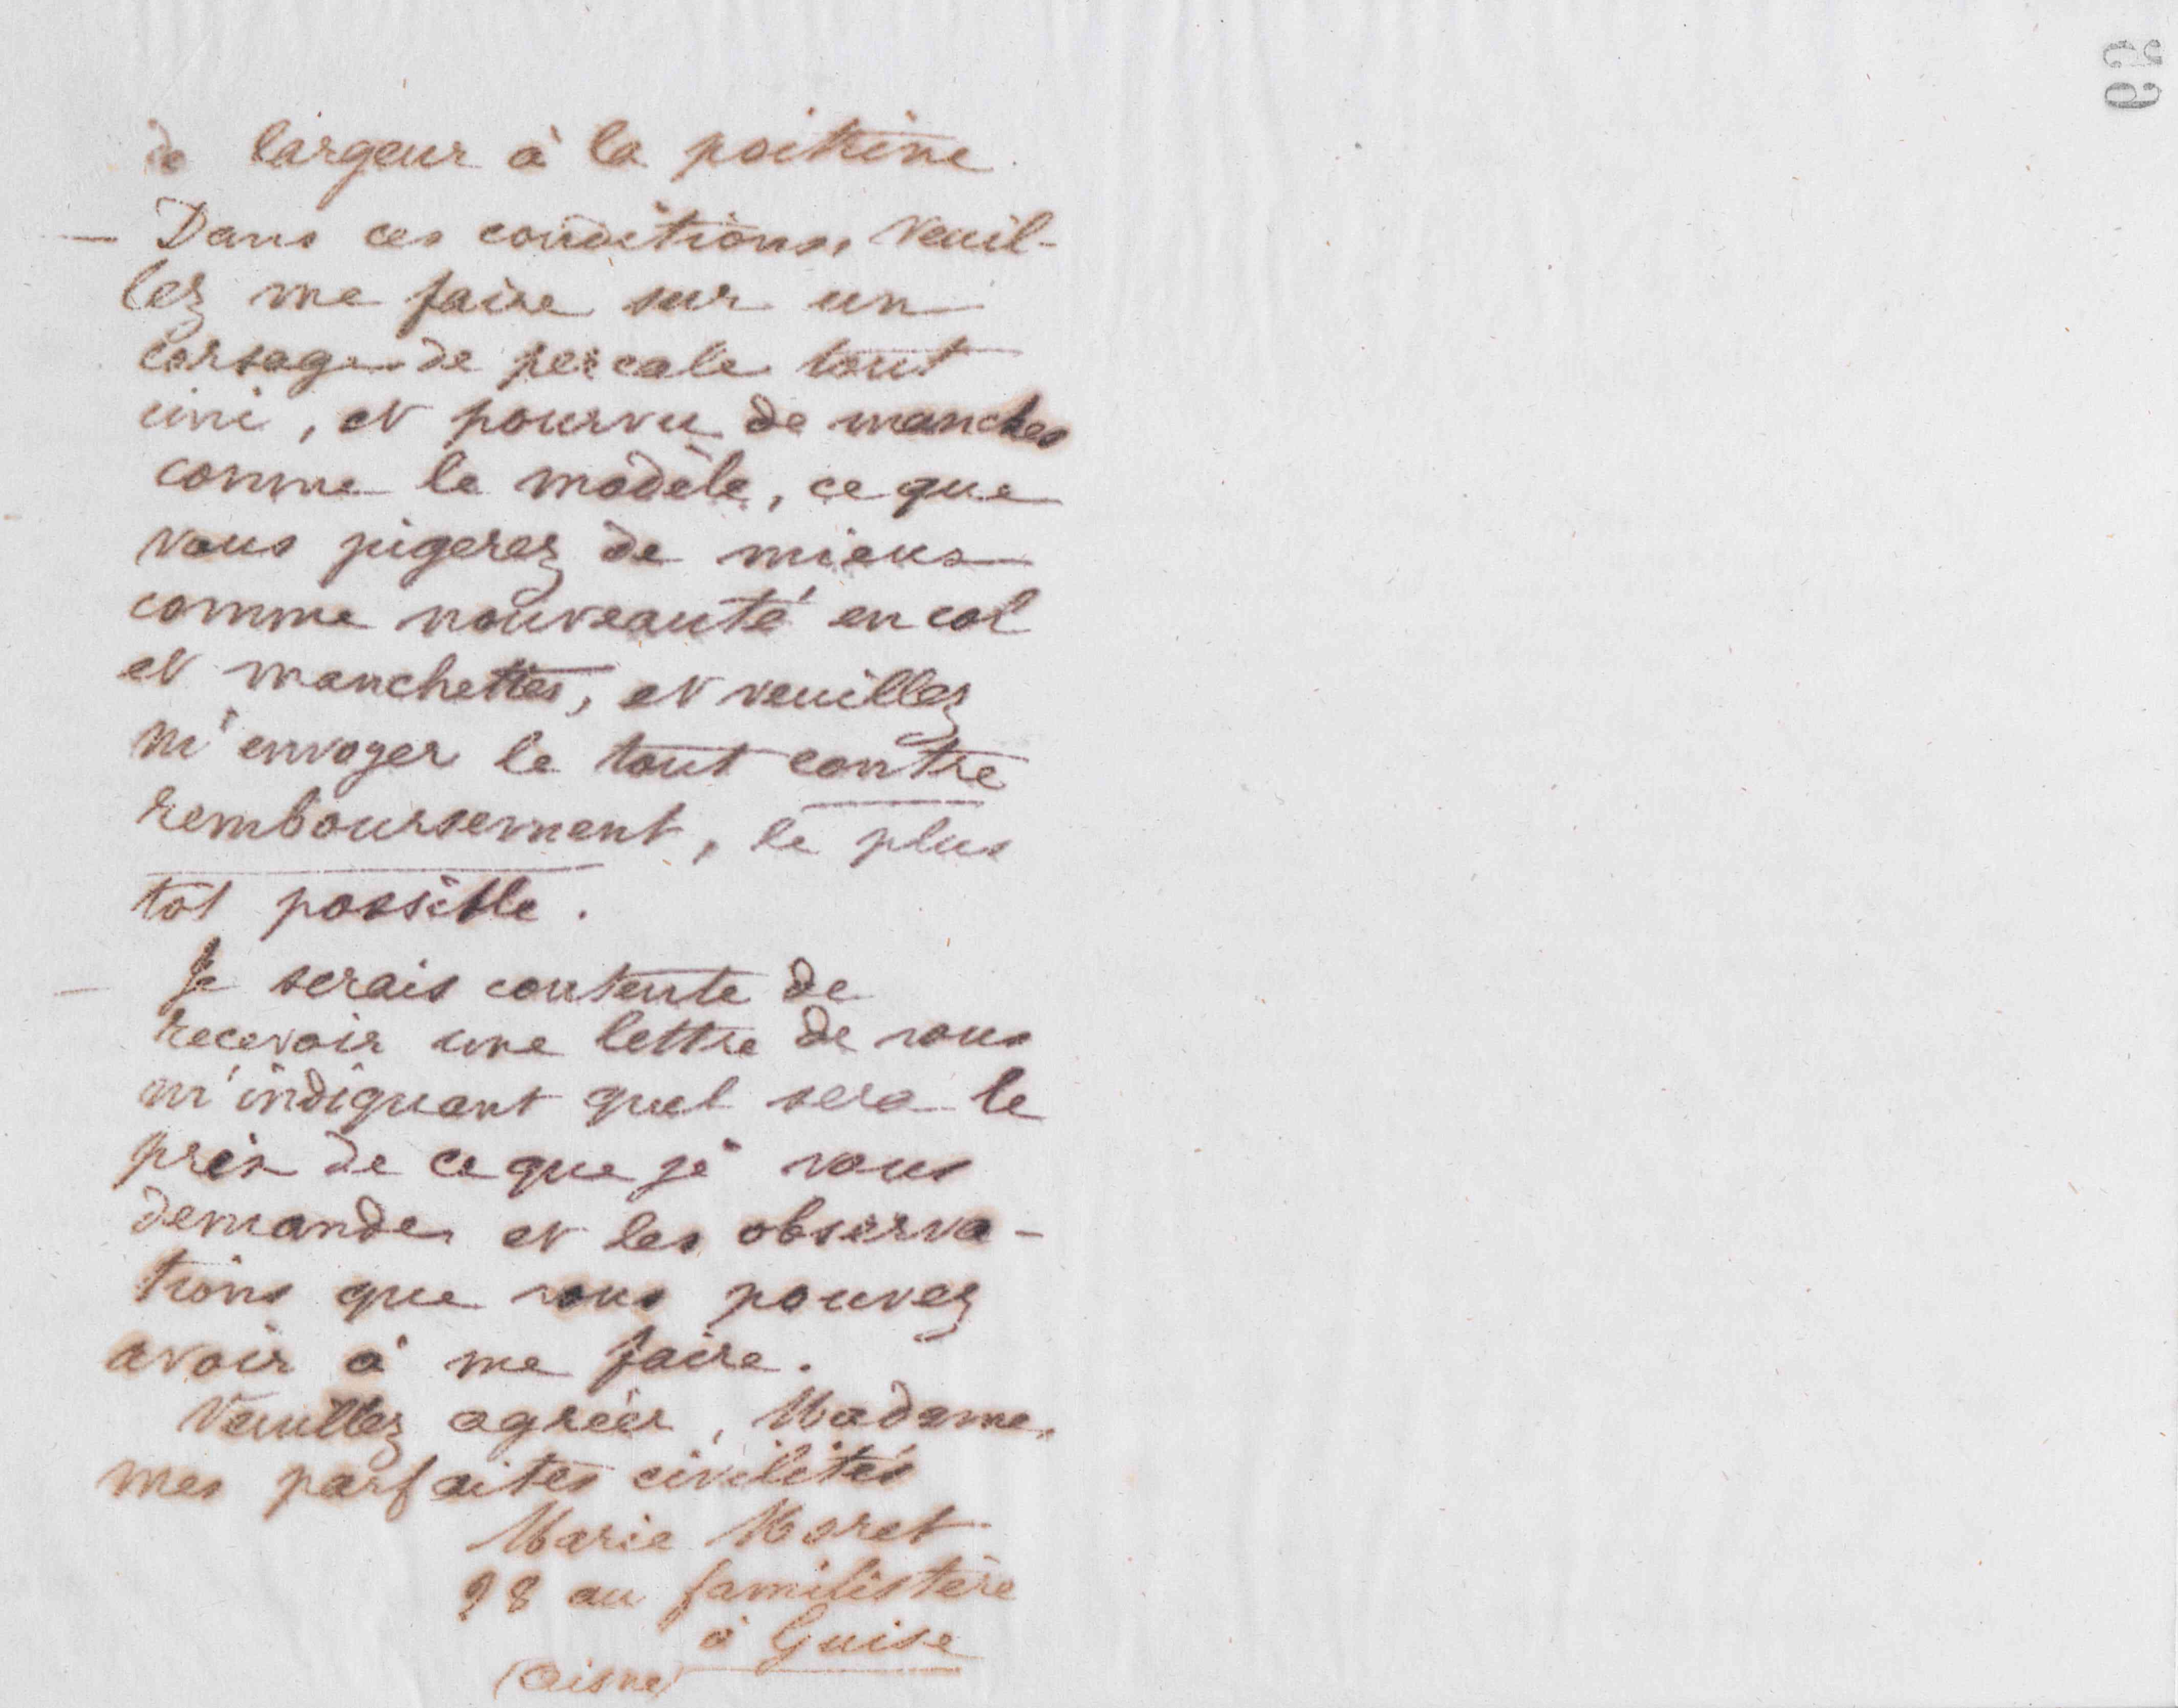 59
de largeur à la poitrine.
— Dans ces conditions, veuil-
lez me faire sur un
corsage de percale tout
uni, et pourvu de manches
comme le modèle, ce que
vous jugerez de mieux
comme nouveauté en col
et manchettes, et veuillez
m'envoyer le tout contre
remboursement, le plus
tôt possible.
— Je serais contente de
recevoir une lettre de vous
m'indiquant quel sera le
prix de ce que je vous
demande et les observa-
tions que vous pouvez
avoir à me faire.
Veuillez agréer, Madame,
mes parfaites civilités
Marie Moret
28 au familistère
à Guise
(Aisne)